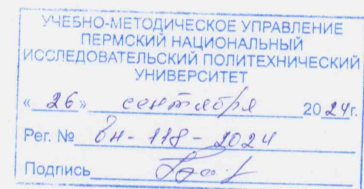 УЧЕБНО-МЕТОДИЧЕСКОЕ УПРАВЛЕНИЕ
ПЕРМСКИЙ НАЦИОНАЛЬНЫЙ
ИССЛЕДОВАТЕЛЬСКИЙ ПОЛИТЕХНИЧЕСКИЙ
УНИВЕРСИТЕТ
«26» сентября 2024г.
Рег. № вн-118-2024
Подпись